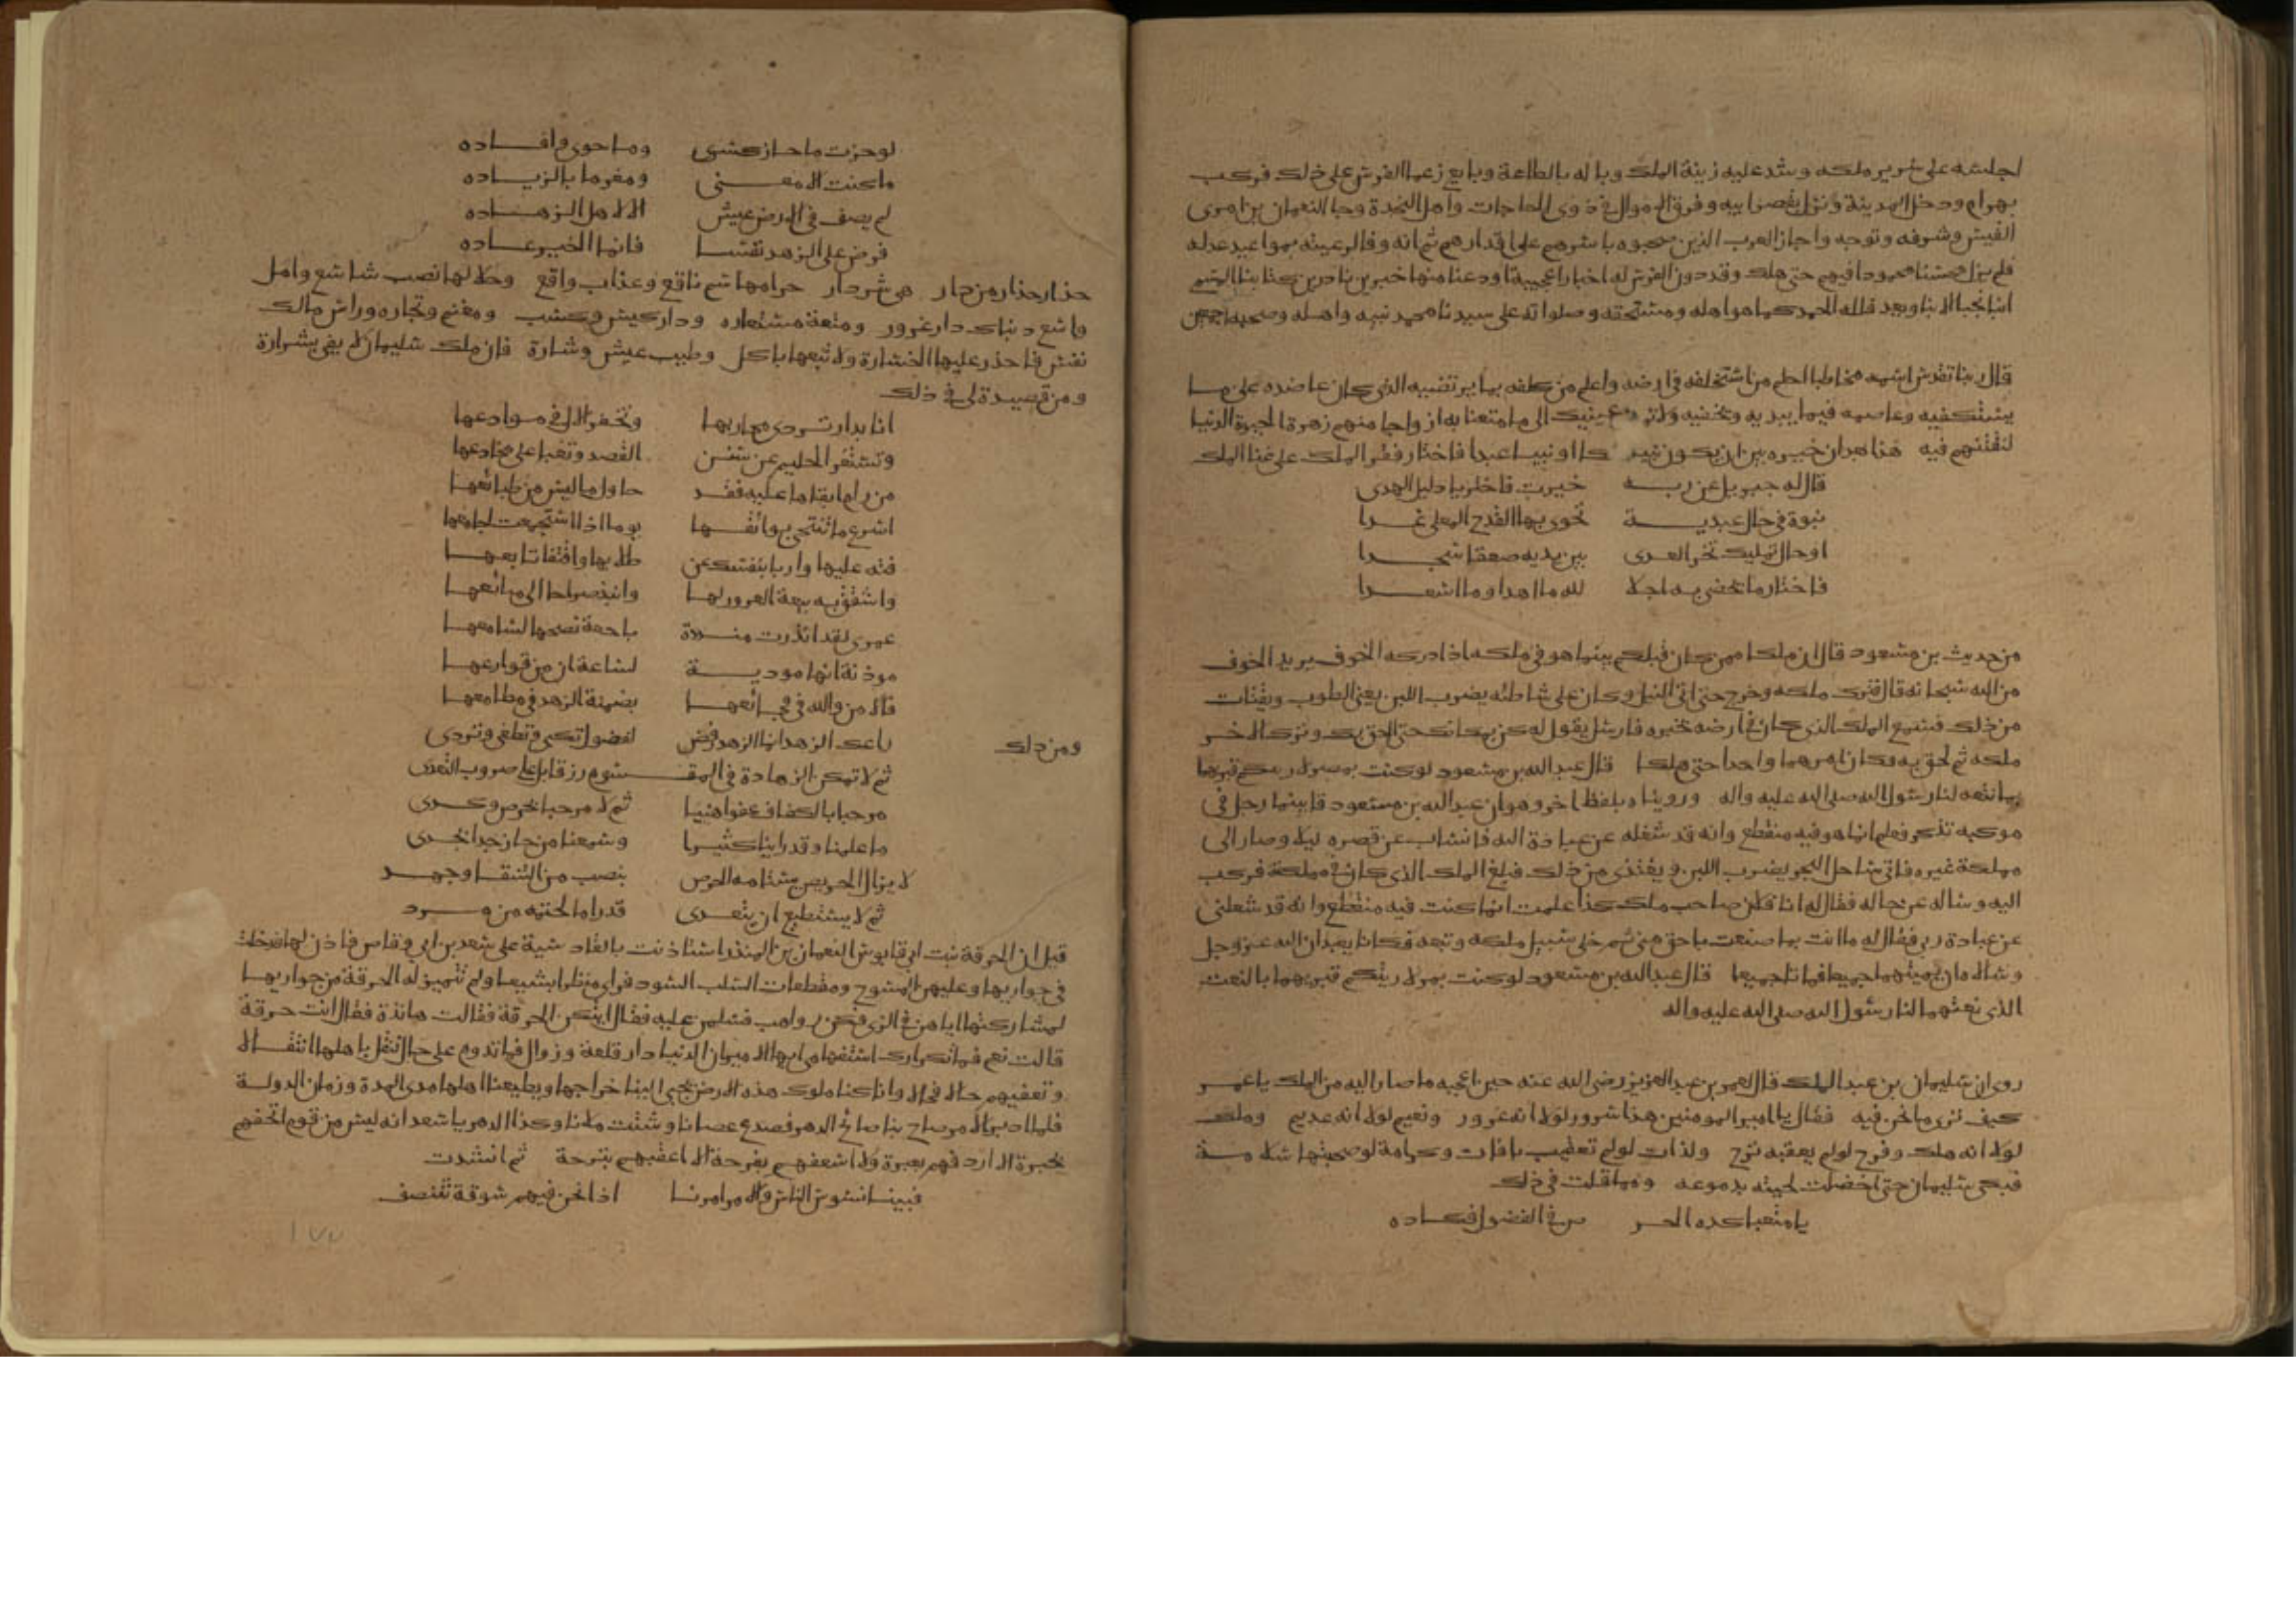 اجلسه على سرير ملكه وشد عليه زينة الملك وبا له بالطاعة وبايع زعما الفرس على ذلك فركب
بهرام ودخل المدينة ونزل بقصر ابيه وفرق الاموال في ذوى الحاجات واهل النجدة وحبا النعمان بن امرى
القيس وشرفه وتوجه واجاز العرب الذين صحبوه باسرهم على اقدارهم ثم انه وفا لرعيته بمواعيد عدله
فلم يزل محسنا محمودا فيهم حتى هلك وقد دون الفرس له اخبارا عجيبة اودعنا منها خبرين نادرين كتابنا
انبا نجبا الابنا وبعد فلله الحمد كما هو اهله ومستحقه وصلواته على سيدنا محمد نبيه واهله وصحبه اجمعين
قال ربنا تقدس اسمه مخاطبا اعلم من استخلفه في ارضه واعلم من كلفه بما يرتضيه الذي كان عاضده على ما
يستكفيه وعاصمه فيما يبديه ويخفيه ولا عينيك الى ما متعنا به ازواجا منهم زهرة الحيوة الدنيا
لنفتنهم فيه هذا بعد ان خيره بين ان يكون نبيا ملكا او نبيا عبدا فاختار فقر الملك على غنا الملك
قال له جبريل عن ربه خيرت فاختر يا دليل الهدى
نبوة في حال عبدية تحوى بها القدح المعلى غدا
او حال تمليك تخر العدى بين يديه صعقا سجدا
فاختار ما يحضى به اجلا لله ما اهدا وما اسعدا
من حديث بن مسعود قال ان ملكا ممن كان قبلكم بينما هو في ملكه اذ ادركه الخوف يريد الخوف
من الله سبحانه قال فترك ملكه وخرج حتى اتى النيل وكان على شاطئه يضرب اللبن يعني الطوب ويقتات
من ذلك فسمع الملك الذي كان في ارضه بخبره فارسل يقول له كن مكانك حتى الحق بك وترك الاخر
ملكه ثم لحق به فكان امرهما واحدا حتى هلكا قال عبد الله بن مسعود لو كنت بمصر لاريتكم قبرهما
بما نعته لنا رسول الله صلى الله عليه واله وروينا ه بلفظ اخر وهو ان عبد الله بن مسعود قا بينما رجل في
موكبه تذكر فعلم ان ما هو فيه منقطع وانه قد شغله عن عبادة الله فانساب عن قصره ليلا وصار الى
مملكة غيره فاتى ساحل البحر يضرب اللبن ويغتذى من ذلك فبلغ الملك الذي كان في مملكة فركب
اليه وساله عن حاله فقال له انا فلان صاحب ملك كذا علمت ان ما كنت فيه منقطع وانه قد شغلني
عن عبادة ربي فقال له ما انت بما صنعت باحق مني ثم خلى سبيل ملكه وتبعه فكانا يعبدان الله عز وجل
وسالاه ان يميتهما جميعا فماتا جميعا قال عبد الله بن مسعود لو كنت بمصر لاريتكم قبريهما بالنعت
الذي نعتهما لنا رسول الله صلى الله عليه واله
روى ان سليمان بن عبد الملك قال لعمر بن عبد العزيز رضي الله عنه حين اعجبه ما صار اليه من الملك يا عمر
كيف ترى ما نحن فيه فقال يا امير المومنين هذا سرور لولا انه غرور ونعيم لولا انه عديم وملك
لولا انه هلك وفرح لو لم يعقبه ترح ولذات لو لم تعقب بافات وكرامة لو صحبتها سلامة
فبكى سليمان حتى اخضلت لحيته بدموعه ومما قلت في ذلك
يا متعبا كده الحر ص في الفضول فكاده
لو حزت ما حاز كسرى وما حوى وافاده
ما كنت الا معنى ومغرما بالزياده
لم يصف في الارض عيش الا لاهل الزهاده
فرض على الزهد نفسا فانما الخير عاده
حذار حذار من دار هي شر دار حرامها سم ناقع وعذاب واقع وحلالها نصب شاسع وامل
واسع دنياك دار غرور ومتعة مستعاره ودار كيس وكسب ومغنم وتجاره وراس مالك
نفس فاحذر عليها الخسارة ولا تبعها باكل وطيب عيش وشارة فان ملك سليمان لا يفي بشرارة
ومن قصيدة لي في ذلك
انا بدار تردى محاربها وتخفر الال في موادعها
وتستفز الحليم عن سنن القصد وتغبا على مخادعها
من رام ابقاها عليه فقد حاول ما ليس من طبائعها
اسرع ما تنتحى بوائقها يوما اذا استجمعت لجامعها
فته عليها واربا بنفسك عن طلابها وافتقا تابعها
واشقق به بيعة الغرور لها وانبذ صراطا الى مبائعها
عمرى لقد انذرت منددة باحمة نصحها لسامعها
موذنة انها مودية لساعة ان من قوارعها
فالامن والله في فجائعها بضمنة الزهد في مطامعها
ومن ذلك
باعد الزهد انما الزهد رفض لفضول تكى وتطغى وتردى
ثم لا تمكن الزهادة في المقسوم رزقا بل على ضروب التعدى
مرحبا بالكفاف عفوا هنيا ثم لا مرحبا بحرص وكدى
ما علمنا وقد راينا كثيرا وسمعنا من حاز جدا بجدى
لا يزال الحريص يستامه الحرص بنصب من الشقا وجهد
ثم لا يستطيع ان يتعدى قدرا ما لحتمه من مرد
قيل ان الحرقة بنت ابي قابوس النعمان بن المنذر استاذنت بالقادسية على سعد بن ابي وقاص فاذن لها فدخلت
في جواريها وعليهن المسوح ومقطعات السلب السود فراى منظرا بشيعا ولم تتميز له الحرقة من جواريها
لمشاركتها اياهن في الزي وكن رواهب فسلمن عليه فقال ايتكن الحرقة فقالت هانذة فقال انت حرقة
قالت نعم فما تكرارك استفهامي ايها الامير ان الدنيا دار قلعة وزوال فما تدوم على حال تنقل باهلها انتقالا
وتعقبهم حالا فحالا وانا كنا ملوك هذه الارض يجبى الينا خراجها ويطيعنا اهلها مدى المدة وزمان الدولة
فلما ادبر الامر صاح بنا صائح الدهر فصدع عصانا وشتت ملانا وكذا الدهر يا سعد انه ليس من قوم اتحفهم
بحبرة الا اردفهم بعبرة ولا اسعفهم بفرحة الا اعقبهم بترحة ثم انشدت
فبينا نسوس الناس والامر امرنا اذا نحن فيهم سوقة نتنصف
١٧٧